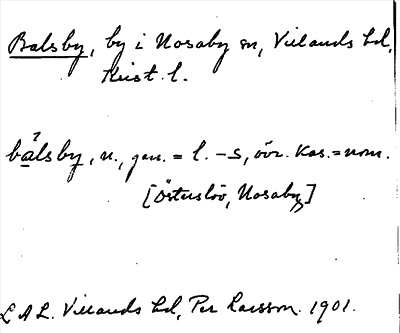 Balsby, by i Nosaby sn, Villands hd,
Krist. l.
balsby, n., gen. = l. -s, övr. kas. = nom.
[Österslöv, Nosaby]
L A L. Villands hd, Per Larsson. 1901.